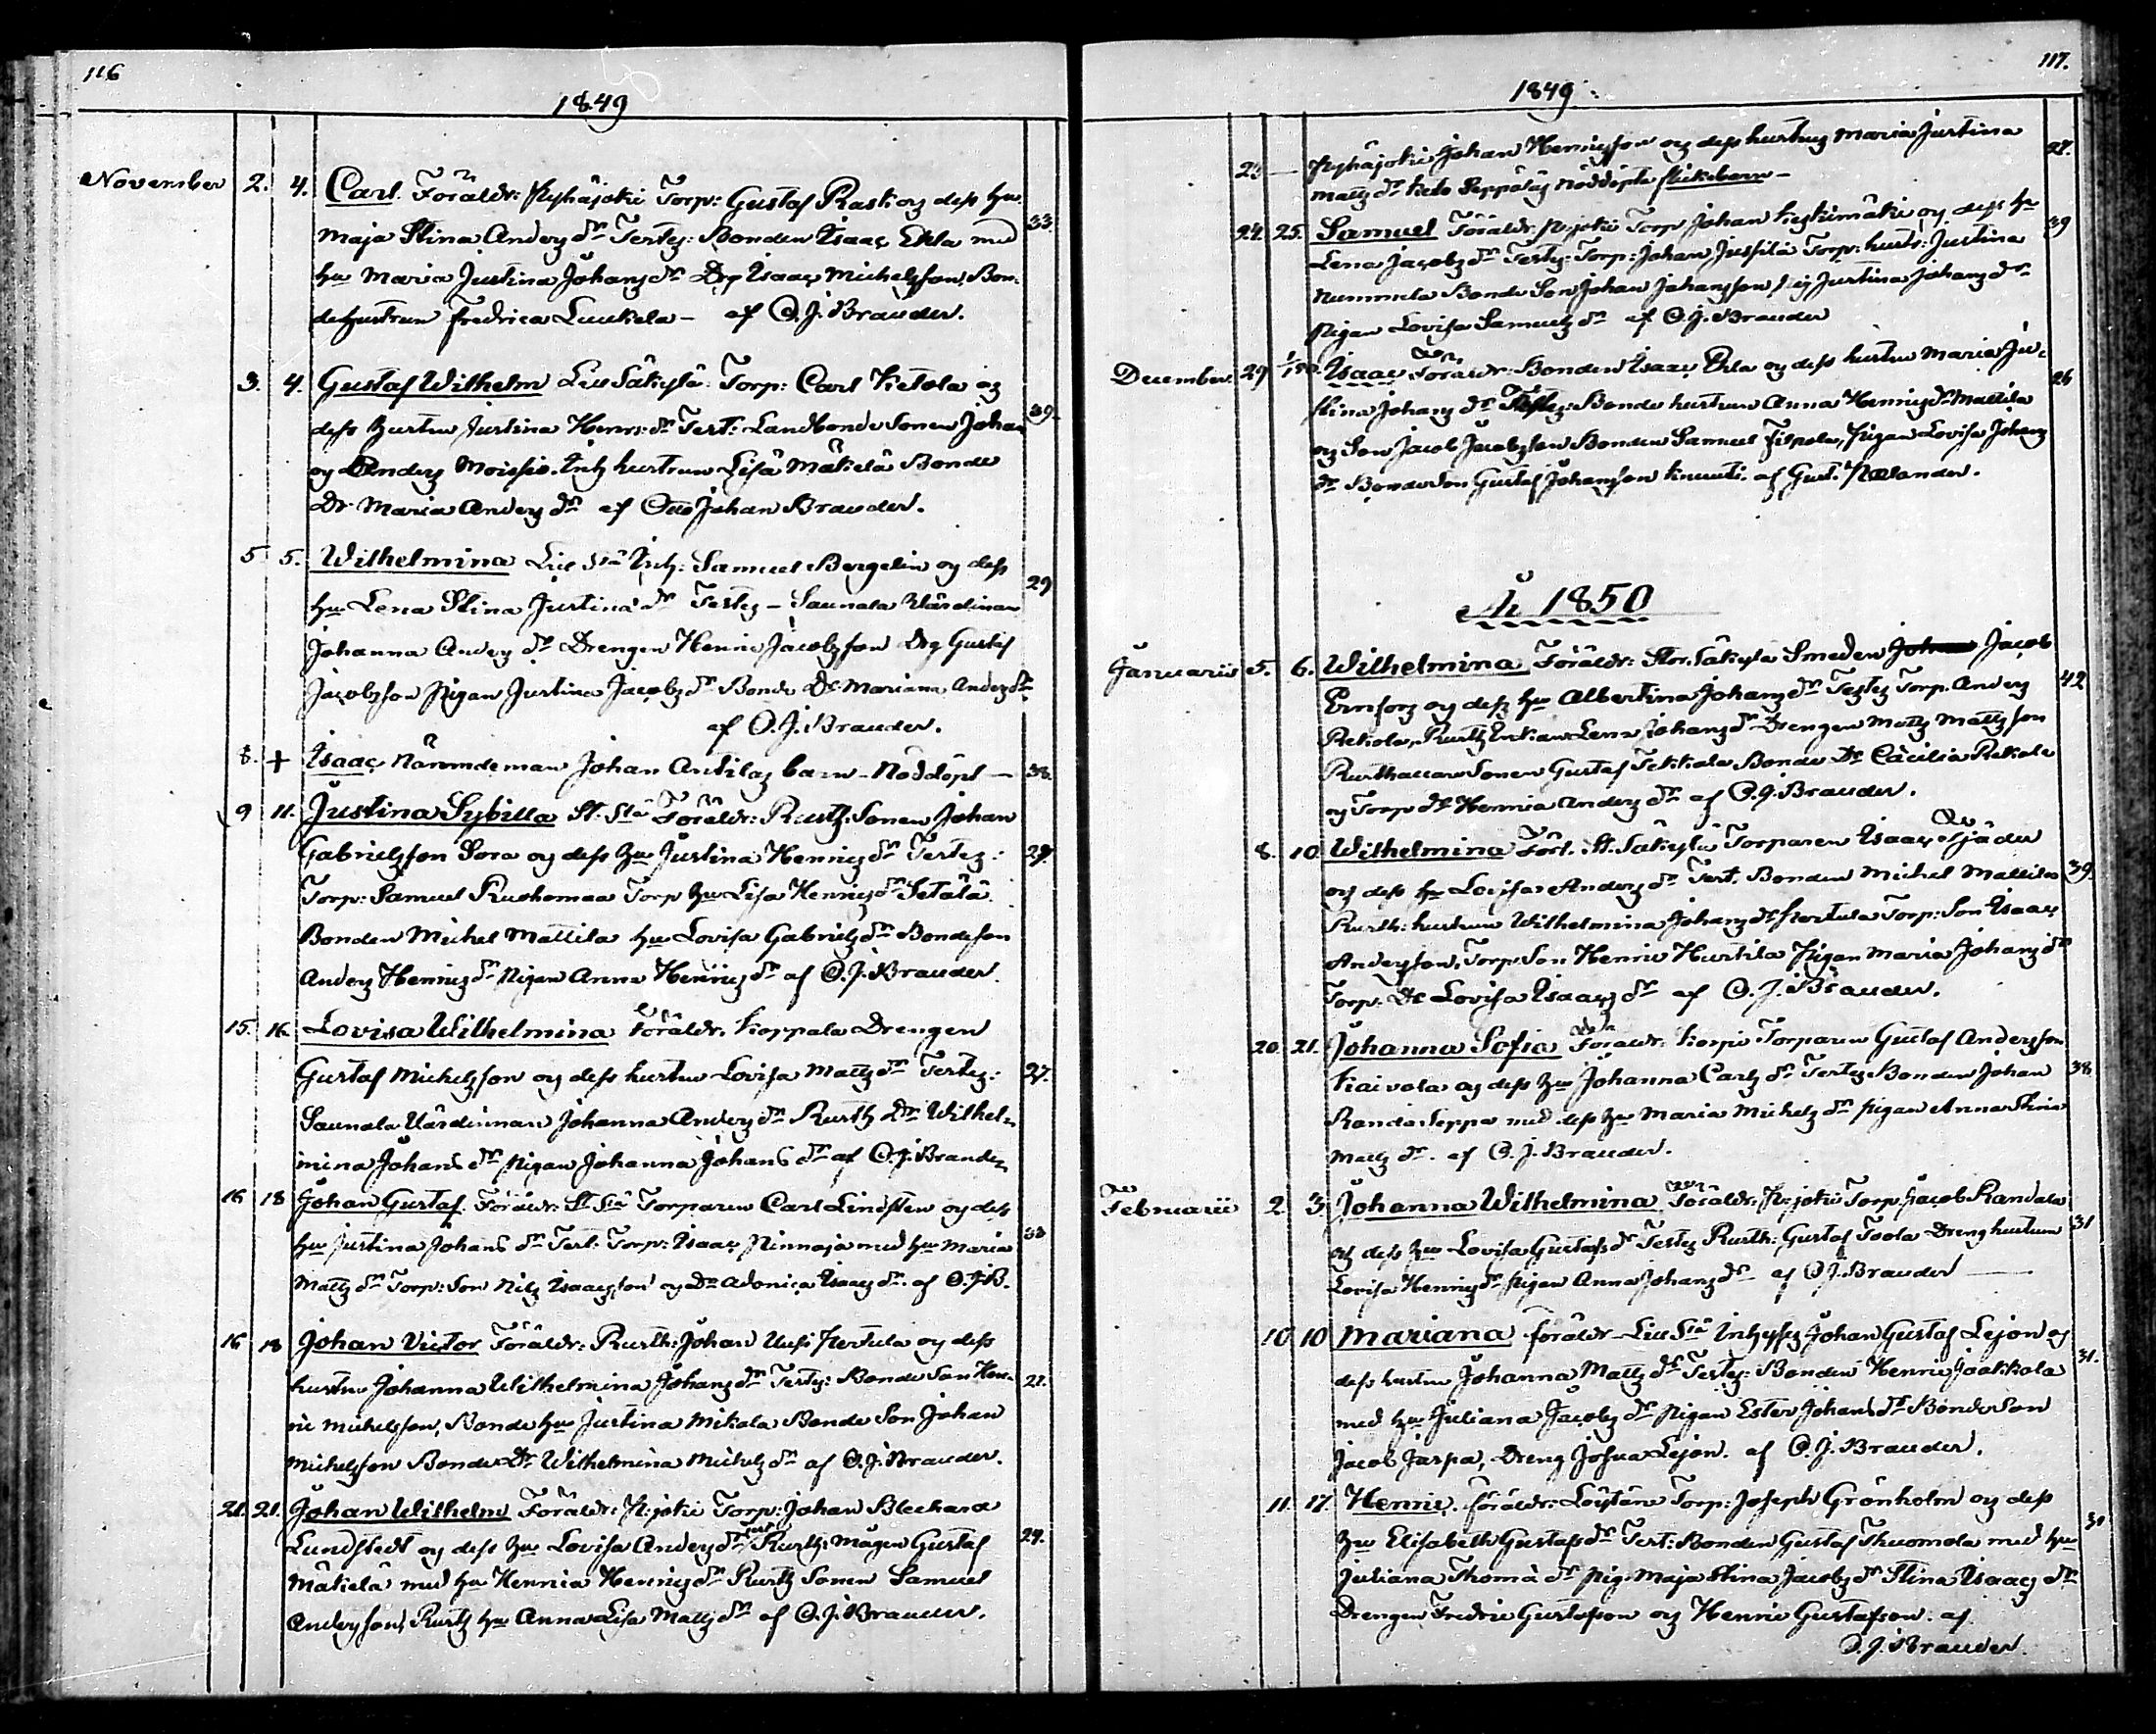 116
1849
November 2. 4. Carl. Föräldr: Pyhäjoki Torp: Gustaf Rask og dess hu
Maja Stina Anders dr Testes: Bonden Isaac Ekla med 33.
hu Maria Justina Johans dr Drg Isaac Michelsson, Bon-
dehustrun Fredrica Luukela – af O.J. Brander.
3. 4. Gustaf Wilhelm Lill Säkylä Torp: Carl Ketola og
dess hustru Justina Henr: dr Test: Landbonde Sonen Johan 39.
og Anders Moisio. Inh hustrun Lisa Mäkelä Bonde
Dr Maria Anders dr af Otto Johan Brander.
5 5. Wilhelmina Lill Slä Inh: Samuel Bergelin og dess
hu Lena Stina Justina dr Testes – Saunala Värdinnan 29
Johanna Anders dr Drengen Henric Jacobsson Drg Gustaf
Jacobsson Pigan Justina Jacobs dr Bonde Dr Mariana Anders dr
af O.J. Brander.
8. + Isaac Nämndeman Johan Antilas barn – Nöddöpt – 38.
9 11. Justina Sybilla St. Slä Föräldr: Rusth. Sonen Johan
Gabrielsson Sora og dess hu Justina Henrics dr Testes: 29.
Torp: Samuel Ruohomaa Torp hu Lisa Henrics dr Setälä
Bonden Michel Mattila hu Lovisa Gabriels dr Bondeson
Anders Henrics dr Pigan Anna Henrics dr af O.J. Brander.
15. 16. Lovisa Wilhelmina Föräldr. Koppala Drengen
Gustaf Michelsson og dess hustru Lovisa Matts dr Testes: 27.
Saunala Värdinnan Johanna Anders dr Rusth Dr Wilhel-
mina Johans dr Pigan Johanna Johans dr af O.J. Brander
16 18 Johan Gustaf. Föräldr: St Slä Torparen Carl Lindsten og dess
hu Justina Johans dr Test. Torp: Isaac Ninnoja med hu Maria 33
Matts dr Torp: Son Nils Isaacsson og Dr Adonica Isaacs dr af O.J.B.
16 18 Johan Victor Föräldr: Rusth: Johan Uusi Hertula og dess
hustru Johanna Wilhelmina Johans dr Testes: Bonde Son Hen- 21.
ric Michelsson, Bonde hu Justina Mikola Bonde Son Johan
Michelsson Bonde Dr Wilhelmina Michels dr af O.J. Brander.
21. 21. Johan Wilhelm Föräldr: P: joki Torp: Johan Bleckard
Lundstedt og dess hu Lovisa Anders dr Test Rusth: Mågen Gustaf 29.
Mäkelä med hu Hennia Henrics dr Rusth Sonen Samuel
Andersson, Rusth hu Anna Lisa Matts dr af O.J. Brander.
117.
1849
23 — Pyhäjoki Johan Henricsson og dess hustru Maria Justina 27.
Matts dr Keto Seppäläs Nöddöpta flickebarn –
24. 25. Samuel Föräldr. P: joki Torp Johan Keskimäki og dess hu 39
Lena Jacobs dr Testes: Torp: Johan Jussila Torp: hustr: Justina
Nummela Bonde Son Johan Johansson, Pig Justina Johans dr
Pigan Lovisa Samuels dr af O.J. Brander
December. 29 1/1 50. Isaac Föräldr: Bonden Isaac Ekla og dess hustru Maria Ju- 26
stina Johans dr Testes: Bonde hustrun Anna Henrics dr Mattila
og Son Jacob Jacobsson Bonden Samuel Filpola, Pigan Lovisa Johans
dr Bonde Son Gustaf Johansson Knuuti. af Gust. Helander.
År 1850
Januarii 5. 6. Wilhelmina Föräldr: Stor. Säkylä Smeden Johan Jacob
Ernfors og dess hu Albertina Johans dr Testes Torp. Anders 42
Rekola, Rusth Enkan Lena Johans dr Drengen Matts Mattsson
Rusthållare Sonen Gustaf Tekkala Bonde Dr Cäcilia Rekola
og Torp dr Hennia Anders dr af O.J. Brander.
8. 10. Wilhelmina Förl. St. Säkylä Torparen Isaac Tjäder
og dess hu Lovisa Anders dr Test. Bonden Michel Mattila 39.
Rusth: hustrun Wilhelmina Johans dr Hertula Torp: Son Isaac
Andersson, Torp Son Henric Hurtila Pigan Maria Johans dr
Torp. Dr Lovisa Isaacs dr af O.J. Brander.
20. 21. Johanna Sofia Föräldr: Korpi Torparen Gustaf Andersson
Kaivola og dess hu Johanna Carls dr Testes Bonden Johan 38.
Randa Seppä med dess hu Maria Michels dr Pigan Anna Stina
Matts dr. af O.J. Brander.
Februarii 2 3 Johanna Wilhelmina Föräldr: P: joki Torp. Jacob Randala
og dess hu Lovisa Gustafs dr Testes Rusth: Gustaf Toola Dreng hustrun 31
Lovisa Henrics dr Pigan Anna Johans dr af O.J. Brander —
10 10 Mariana föräldr Lill Slä Inhyses Johan Gustaf Lejon og
dess hustru Johanna Matts dr Testes: Bonden Henric Jaakkola 31.
med hu Juliana Jacobs dr Pigan Ester Johans dr Bonde Son
Jacob Jaspa, Dreng Josua Lejon. af O.J. Brander.
11. 17. Henric. föräldr: Löytäne Torp: Joseph Grönholm og dess
hu Elisabeth Gustafs dr Test: Bonden Gustaf Thuomola med hu 30
Juliana Thoma dr Pig. Maja Stina Jacobs dr Stina Isaacs dr
Drengen Fredric Gustafson og Henric Gustafson. af
O.J. Brander.